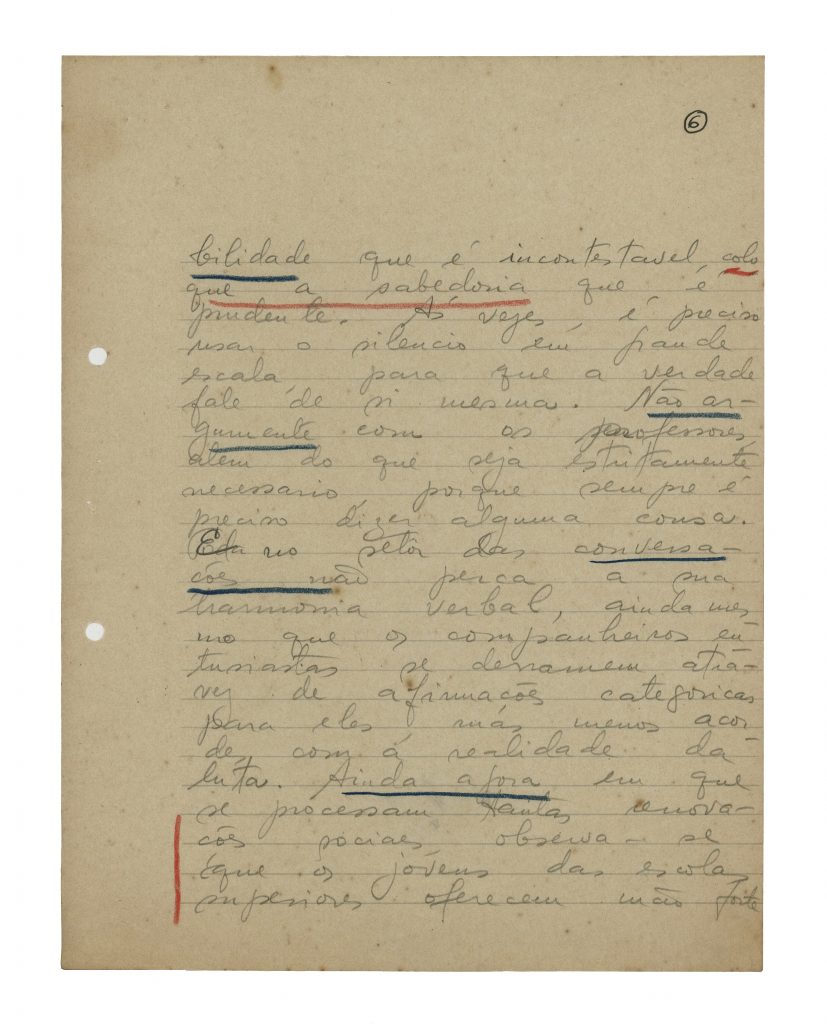 6
bilidade que é incontestavel colo
que a sabedoria que é
prudente. Ás vezes, é preciso
usar o silencio em grande
escala para que a verdade
fale de si mesma. Não ar-
gumente com os professores,
além do que seja estritamente
necessario, porque sempre é
preciso dizer alguma cousa.
E no setôr das conversa-
ções não perca a sua
harmonia verbal, ainda mes
mo que os companheiros en
tusiastas se derramem atra-
vez de afirmações categoricas
para eles, más menos acor
de, com á realidade da
luta. Ainda agora em que
se processam tantas renova-
ções sociaes observa-se
que os jóvens das escolas
superiores oferecem mão forte